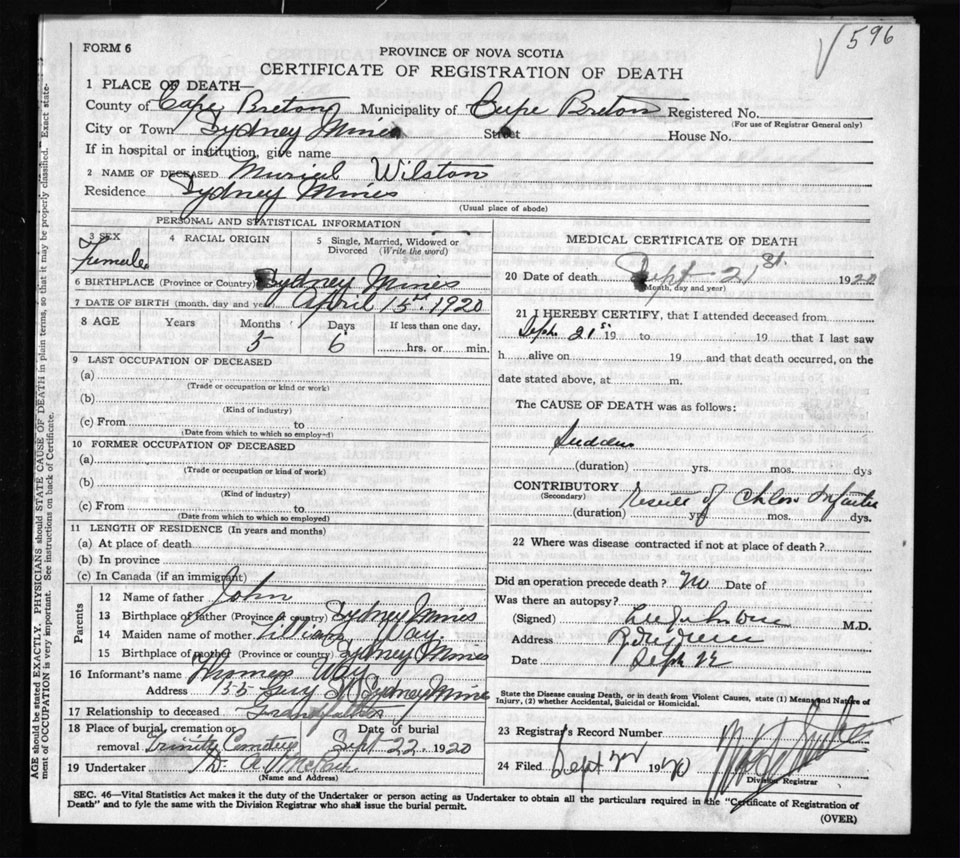 √596
FORM 6
PROVINCE OF NOVA SCOTIA
CERTIFICATE OF REGISTRATION OF DEATH
1 PLACE OF DEATH—
County of Cape Breton Municipality of Cape Breton Registered No.
(For use of Registrar General only)
City or Town Sydney Mines Street House No.
If in hospital or institution, give name
2 NAME OF DECEASED Muriel Wilston
Residence Sydney Mines
(Usual place of abode)
PERSONAL AND STATISTICAL INFORMATION
3 SEX 4 RACIAL ORIGIN 5 Single, Married, Widowed or Divorced (Write the word)
Female
6 BIRTHPLACE (Province or Country) Sydney Mines
7 DATE OF BIRTH (month, day and year) April 15 1920
8 AGE Years Months Days If less than one day,
5 6 hrs. or min.
9 LAST OCCUPATION OF DECEASED
(a)
(Trade or occupation or kind or work)
(b)
(Kind of industry)
(c) From to
(Date from which to which so employed)
10 FORMER OCCUPATION OF DECEASED
(a)
(Trade or occupation or kind of work)
(b)
(Kind of industry)
(c) From to
(Date from which to which so employed)
11 LENGTH OF RESIDENCE (In years and months)
(a) At place of death
(b) In province
(c) In Canada (if an immigrant)
Parents
12 Name of father John
13 Birthplace of father (Province or country) Sydney Mines
14 Maiden name of mother Lillian Way.
15 Birthplace of mother (Province or country) Sydney Mines
16 Informant's name Thomas Way
Address 155 St Sydney Mines
17 Relationship to deceased Grandfather
18 Place of burial, cremation or removal Trinity Cemetery Date of burial Sept 22, 1920
19 Undertaker A
(Name and Address)
MEDICAL CERTIFICATE OF DEATH
20 Date of death Sept 21st. 1920
(Month, day and year)
21 I HEREBY CERTIFY, that I attended deceased from
Sept. 21st 19 to 19 that I last saw
h alive on 19 and that death occurred, on the
date stated above, at m.
The CAUSE OF DEATH was as follows:
Sudden
(duration) yrs. mos. days
CONTRIBUTORY Result of
(Secondary)
(duration) yrs. mos. dys.
22 Where was disease contracted if not at place of death?
Did an operation precede death? no Date of
Was there an autopsy?
(Signed) M.D.
Address
Date Sept 22
State the Disease causing Death, or in death from Violent Causes, state (1) Means and Nature of
Injury, (2) whether Accidental, Suicidal or Homicidal.
23 Registrar's Record Number
24 Filed Sept 22 1920
Division Registrar
SEC. 46—Vital Statistics Act makes it the duty of the Undertaker or person acting as Undertaker to obtain all the particulars required in the "Certificate of Registration of
Death" and to fyle the same with the Division Registrar who shall issue the burial permit.
(OVER)
AGE should be stated EXACTLY. PHYSICIANS should STATE CAUSE OF DEATH in plain terms, so that it may be properly classified. Exact state-
ment of OCCUPATION is very important. See instructions on back of Certificate.